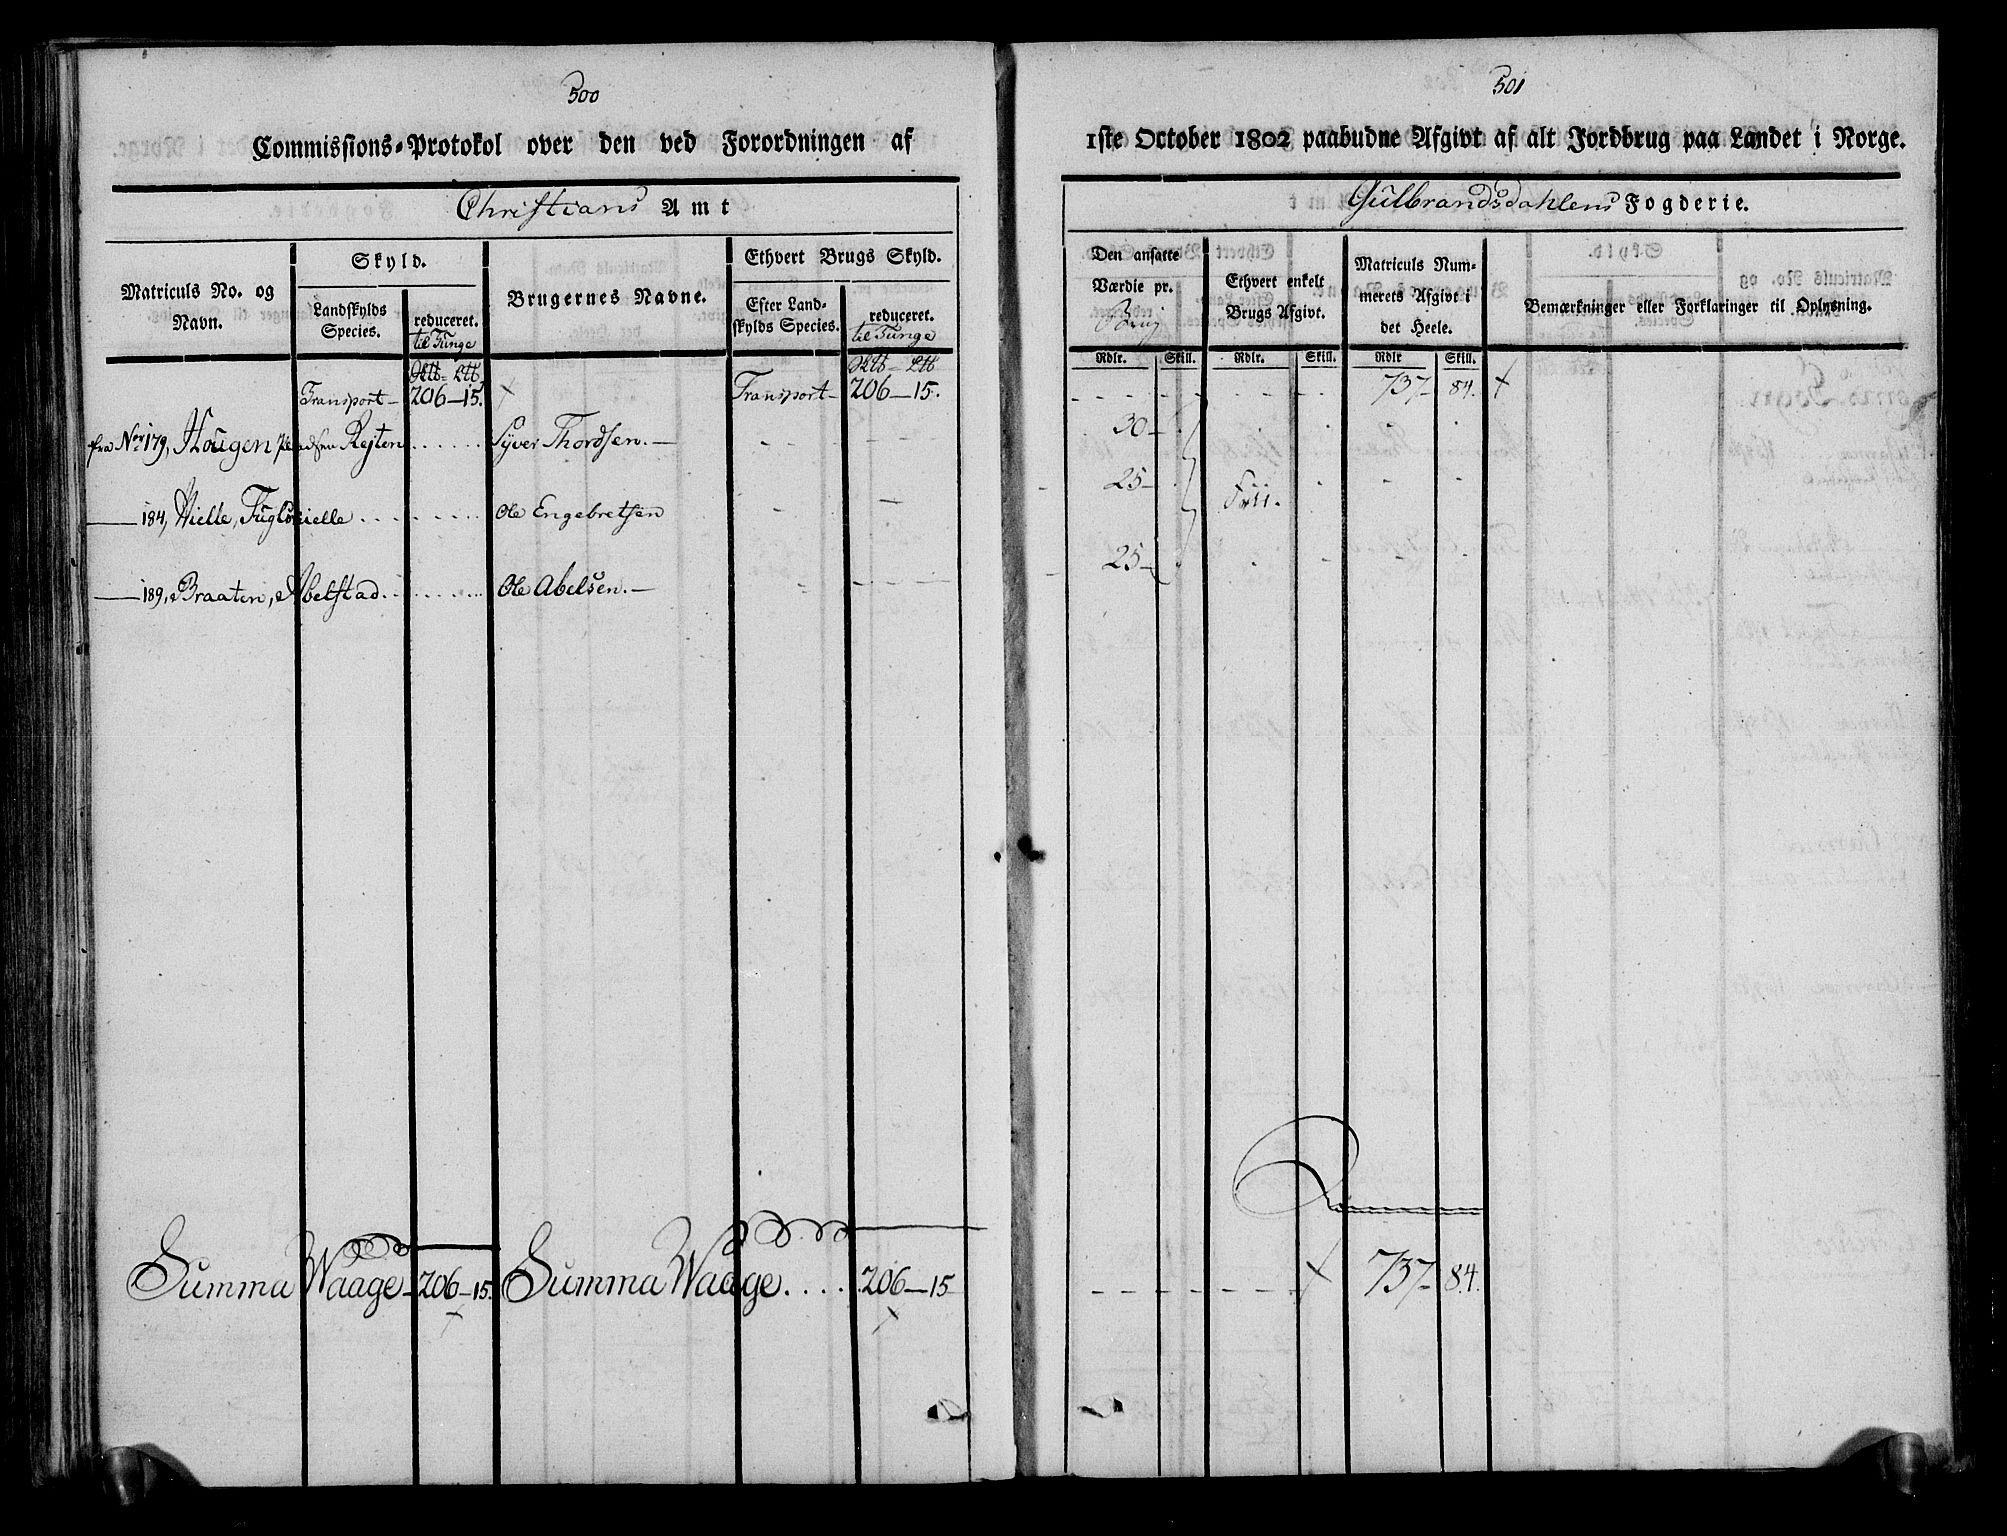 500
Commissions-Protokol over den ved Forordningen af
Christians Amt
Matriculs No. og Navn.
Skyld.
Landskylds Species.
reduceret.
til Tunge
Brugernes Navne.
Ethvert Brugs Skyld.
Efter Landskylds Species.
reduceret.
til Tunge
Transport - 206 - 15. Transport - 206 - 15.
fra No. 179, Hougen Rejten Syver Thordsen.
184, Hielle, Fuglehielle Ole Engebretsen
189, Braaten, Abelstad Ole Abelsen.
Summa Waage - 206 - 15. Summa Waage 206 - 15
501
1ste October 1802 paabudne Afgivt af alt Jordbrug paa Landet i Norge.
Gulbrandsdahlens Fogderie.
Den ansatte Værdie pr.
Brug
Ethvert enkelt Brugs Afgivt.
Matriculs Nummerets Afgivt i det Heele.
Bemærkninger eller Forklaringer til Oplysning.
Rdlr. Skill. Rdlr. Skill. Rdlr Skill.
737 - 84.
30 -
25 - Frii.
25 -
737 - 84.